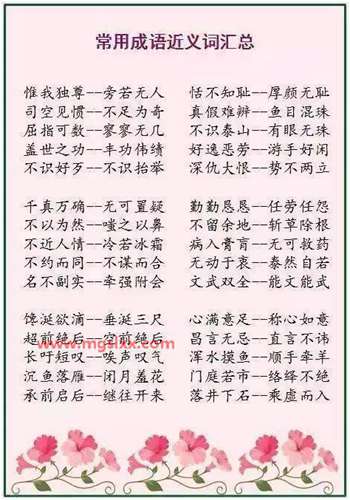 常用成语近义词汇总
惟我独尊--旁若无人 恬不知耻--厚颜无耻
司空见惯--不足为奇 真假难辨--鱼目混珠
屈指可数--寥寥无几 不识泰山--有眼无珠
盖世之功--丰功伟绩 好逸恶劳--游手好闲
不识好歹--不识抬举 深仇大恨--势不两立
千真万确--无可置疑 勤勤恳恳--任劳任怨
不以为然--嗤之以鼻 不留余地--斩草除根
不近人情--冷若冰霜 病入膏肓--无可救药
不约而同--不谋而合 无动于衷--泰然自若
名不副实--牵强附会 文武双全--能文能武
馋涎欲滴--垂涎三尺 心满意足--称心如意
超前绝后--空前绝后 昌言无忌--直言不讳
www.mgslxx.com
长吁短叹--唉声叹气 浑水摸鱼--顺手牵羊
沉鱼落雁--闭月羞花 门庭若市--络绎不绝
承前启后--继往开来 落井下石--乘虚而入